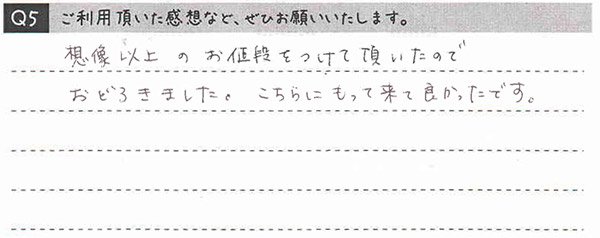 Q5 ご利用頂いた感想など、ぜひお願いいたします。
想像以上のお値段をつけて頂いたので
おどろきました。こちらにもって来て良かったです。